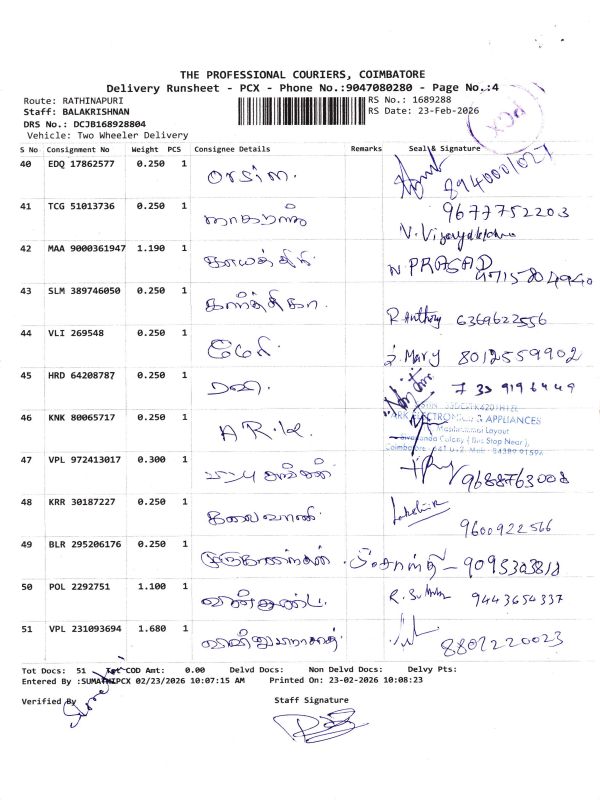 THE PROFESSIONAL COURIERS, COIMBATORE
Delivery Runsheet - PCX - Phone No.:9047080280 - Page No.:4
Route: RATHINAPURI RS No.: 1689288
Staff: BALAKRISHNAN RS Date: 23-Feb-2026
DRS No.: DCJB168928804
PCX
Vehicle: Two Wheeler Delivery
S No Consignment No Weight PCS Consignee Details Remarks Seal & Signature
40 EDQ 17862577 0.250 1 8940001027
41 TCG 51013736 0.250 1 9677752203
V. Vijayalakshmi
42 MAA 9000361947 1.190 1 காயத்திரி N PRASAD 9715804940
43 SLM 389746050 0.250 1 கார்த்திகா R Anthony 6369622556
44 VLI 269548 0.250 1 மேரி J. Mary 8012559902
45 HRD 64208787 0.250 1 ரவி
46 KNK 80065717 0.250 1 A R K
ARK ELECTRONICS & APPLIANCES
47 VPL 972413017 0.300 1 9688763008
48 KRR 30187227 0.250 1 கலைவாணி 9600922566
49 BLR 295206176 0.250 1 முருகானந்தன் 9095303818
50 POL 2292751 1.100 1 9443654337
51 VPL 231093694 1.680 1 8807220023
Tot Docs: 51 Tot COD Amt: 0.00 Delvd Docs: Non Delvd Docs: Delvy Pts:
Entered By :SUMATHIPCX 02/23/2026 10:07:15 AM Printed On: 23-02-2026 10:08:23
Verified By Staff Signature